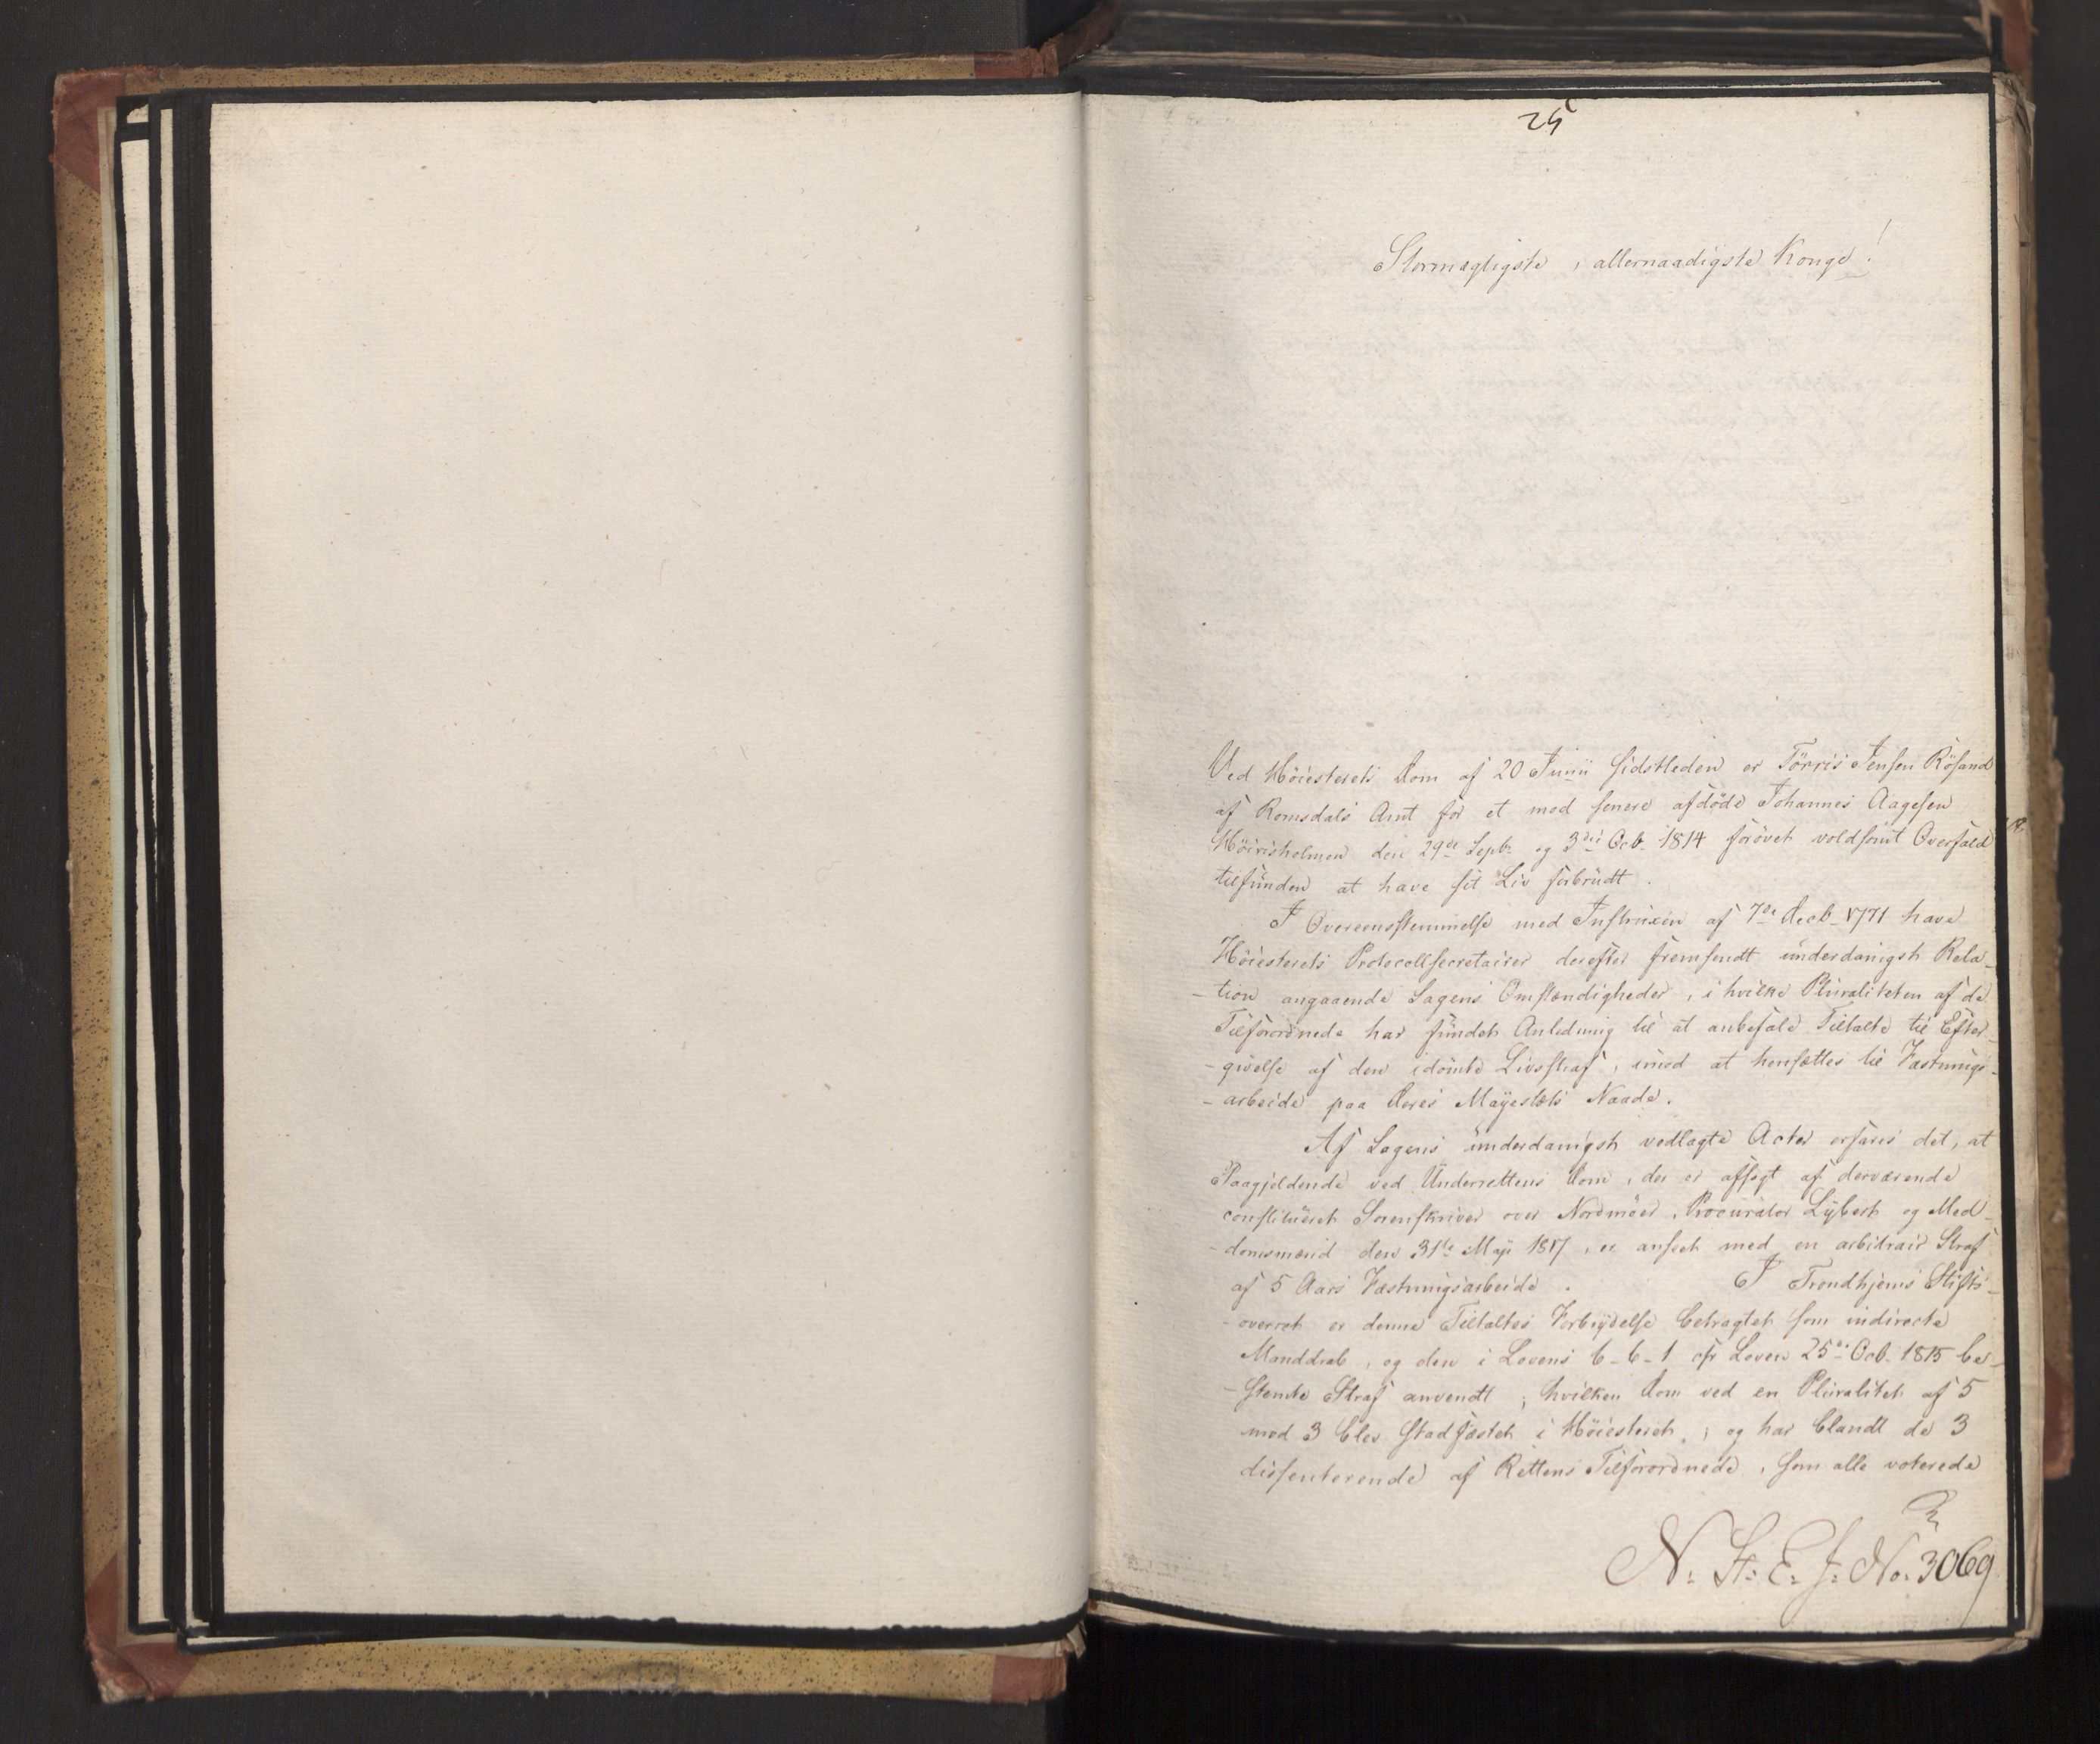 25
Stormægtigste, allernaadigste Konge!
Ved Höiesterets Dom af 20 Junii sidstleden er Törris Jensen Rösand
af Romsdals Amt for et mod senere afdöde Johannes Aagesen
Höirisholmen den 29de Septr og 3die Octb. 1814 forövet voldsomt Overfald
tilfunden at have sit Liv forbrudt.
I Overeensstemmelse med Instruxen af 7de Decb. 1771 have
Höiesterets Protocollsecretairer derefter fremsendt underdanigst Rela-
-tion angaaende Sagens Omstændigheder, i hvilke Pluraliteten af de
Tilforordnede har fundet Anledning til at anbefale Tiltalte til Efter-
-givelse af den idömte Livsstraf, imod at hensættes til Fæstnings-
-arbeide paa Deres Mayestæts Naade.
Af Sagens underdanigst vedlagte Acter erfares det, at
Paagjeldende ved Underrettens Dom, der er afsagt af derværende
constitueret Sorenskriver over Nordmöer, Procurator Lybert og Med-
-domsmænd den 31te Maji 1817, er anseet med en arbitrair Straf
af 5 Aars Fæstningsarbeide. I Trondhjems Stifts-
-overret er denne Tiltaltes Forbrydelse betragtet som indirecte
Manddrab, og den i Lovens 6-6-1 cfr Loven 25de Octb. 1815 be-
-stemte Straf anvendt; hvilken Dom ved en Pluralitet af 5
mod 3 blev stadfæstet i Höiesteret; og har blandt de 3
dissenterende af Rettens Tilforordnede, som alle voterede
N: St: E: J: No: 3069